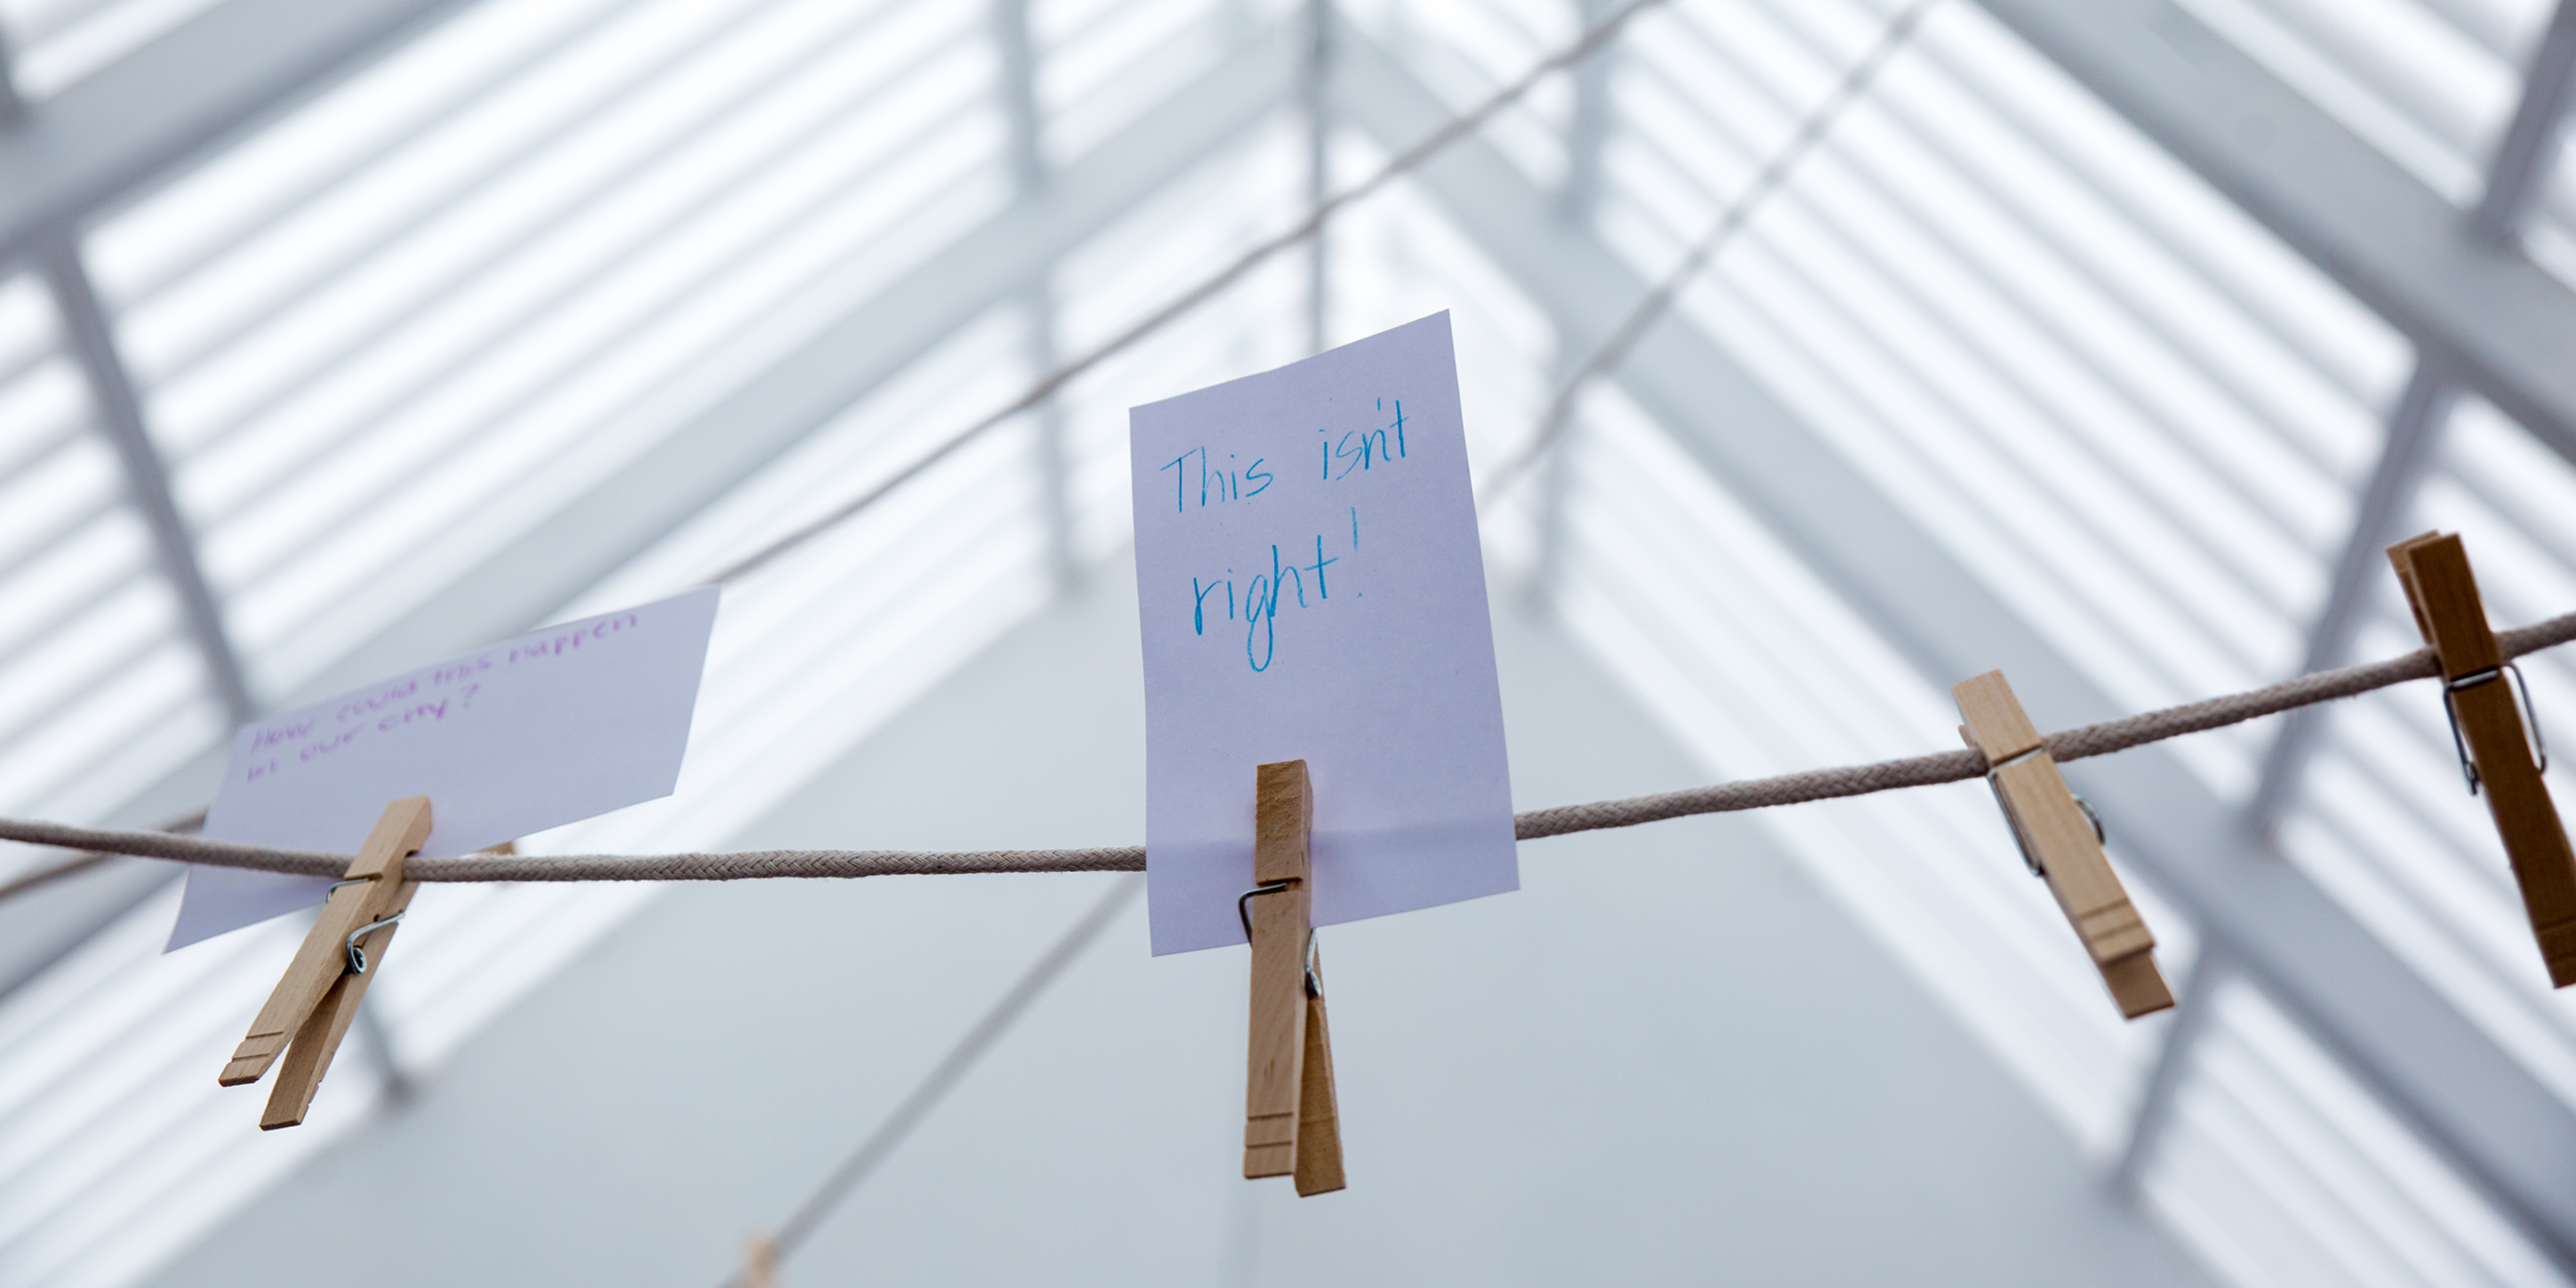 How could this happen
in our city?
This isn't
right!